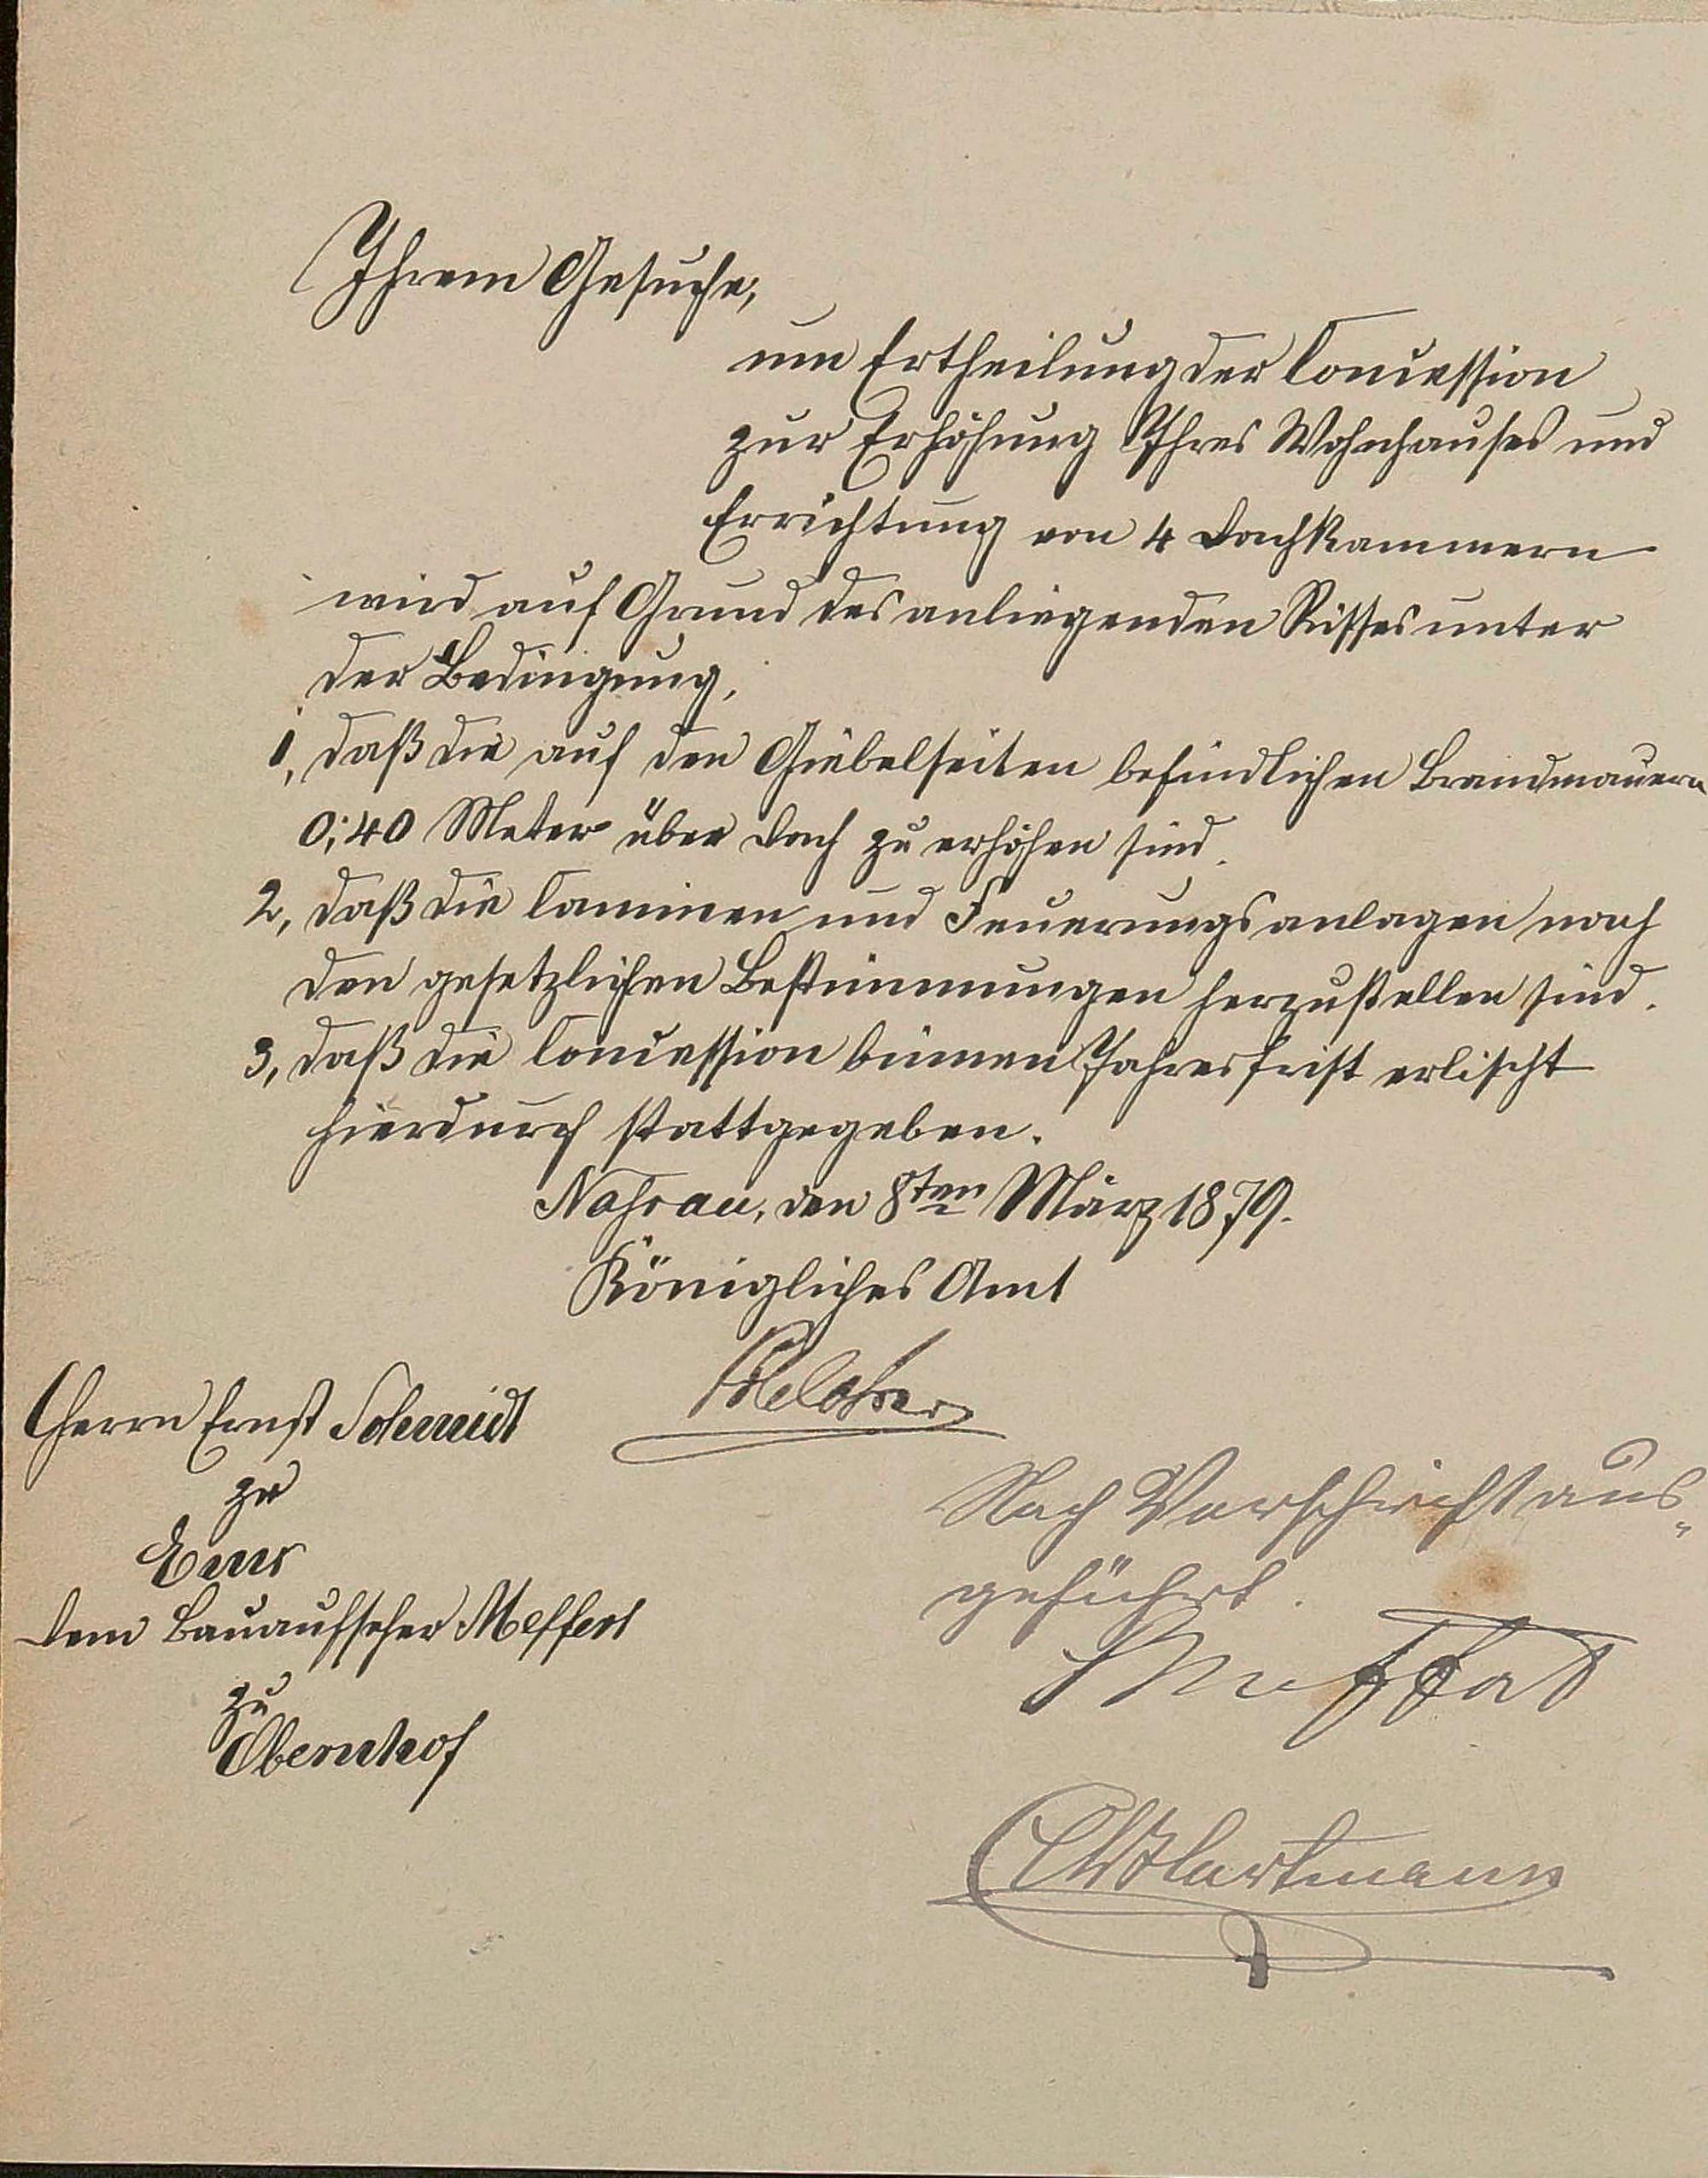 Ihrem Gesuche,
um Ertheilung der Concession
zur Erhöhung Ihres Wohnhauses und
Errichtung von 4 Dachkammern
wird auf Grund des anliegenden Risses unter
der Bedingung,
1, daß die auf den Giebelseiten befindlichen Brandmauern
0,40 Meter über Dach zu erhöhen sind.
2, daß die Caminen und Feuerungsanlagen nach
den gesetzlichen Bestimmungen herzustellen sind.
3, daß die Concession binnen Jahresfrist erlischt
hierdurch stattgegeben.
Nassau, den 8ten März 1879.
Königliches Amt
Herrn Ernst Schmidt
zu
Ems
Dem Bauaufseher Meffert
zu
Obernhof
Nach Vorschrift aus-
geführt.
Meffert
Hartmann